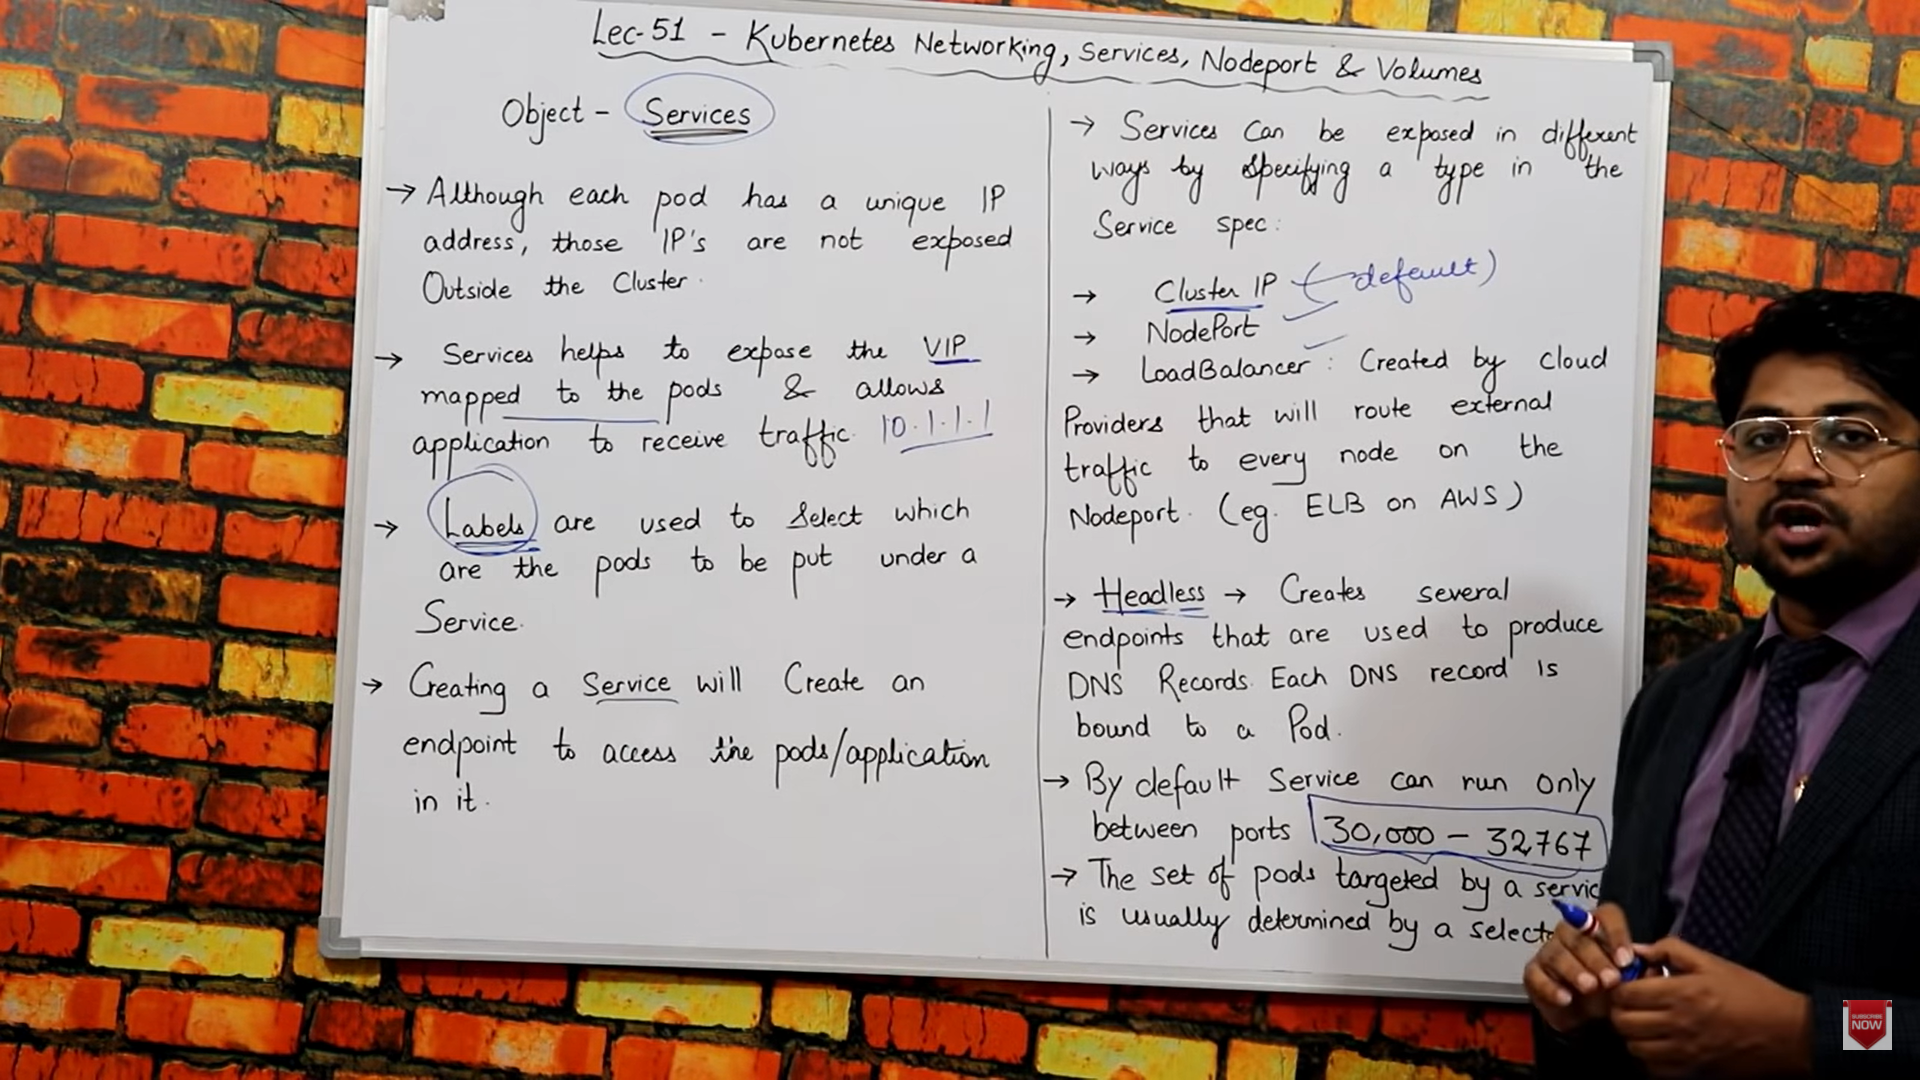 Lec-51 - Kubernetes Networking, Services, Nodeport & Volumes
Object - Services
→ Although each pod has a unique IP
address, those IP's are not exposed
Outside the Cluster.
→ Services helps to expose the VIP
mapped to the pods & allows
application to receive traffic. 10.1.1.1
→ Labels are used to Select which
are the pods to be put under a
Service.
→ Creating a Service will Create an
endpoint to access the pods/application
in it.
→ Services Can be exposed in different
ways by Specifying a type in the
Service spec:
→ Cluster IP (default)
→ NodePort
→ LoadBalancer : Created by cloud
Providers that will route external
traffic to every node on the
Nodeport. (eg. ELB on AWS)
→ Headless → Creates several
endpoints that are used to produce
DNS Records. Each DNS record is
bound to a Pod.
→ By default Service can run only
between ports 30,000 - 32767
→ The set of pods targeted by a servic
is usually determined by a select
SUBSCRIBE
NOW